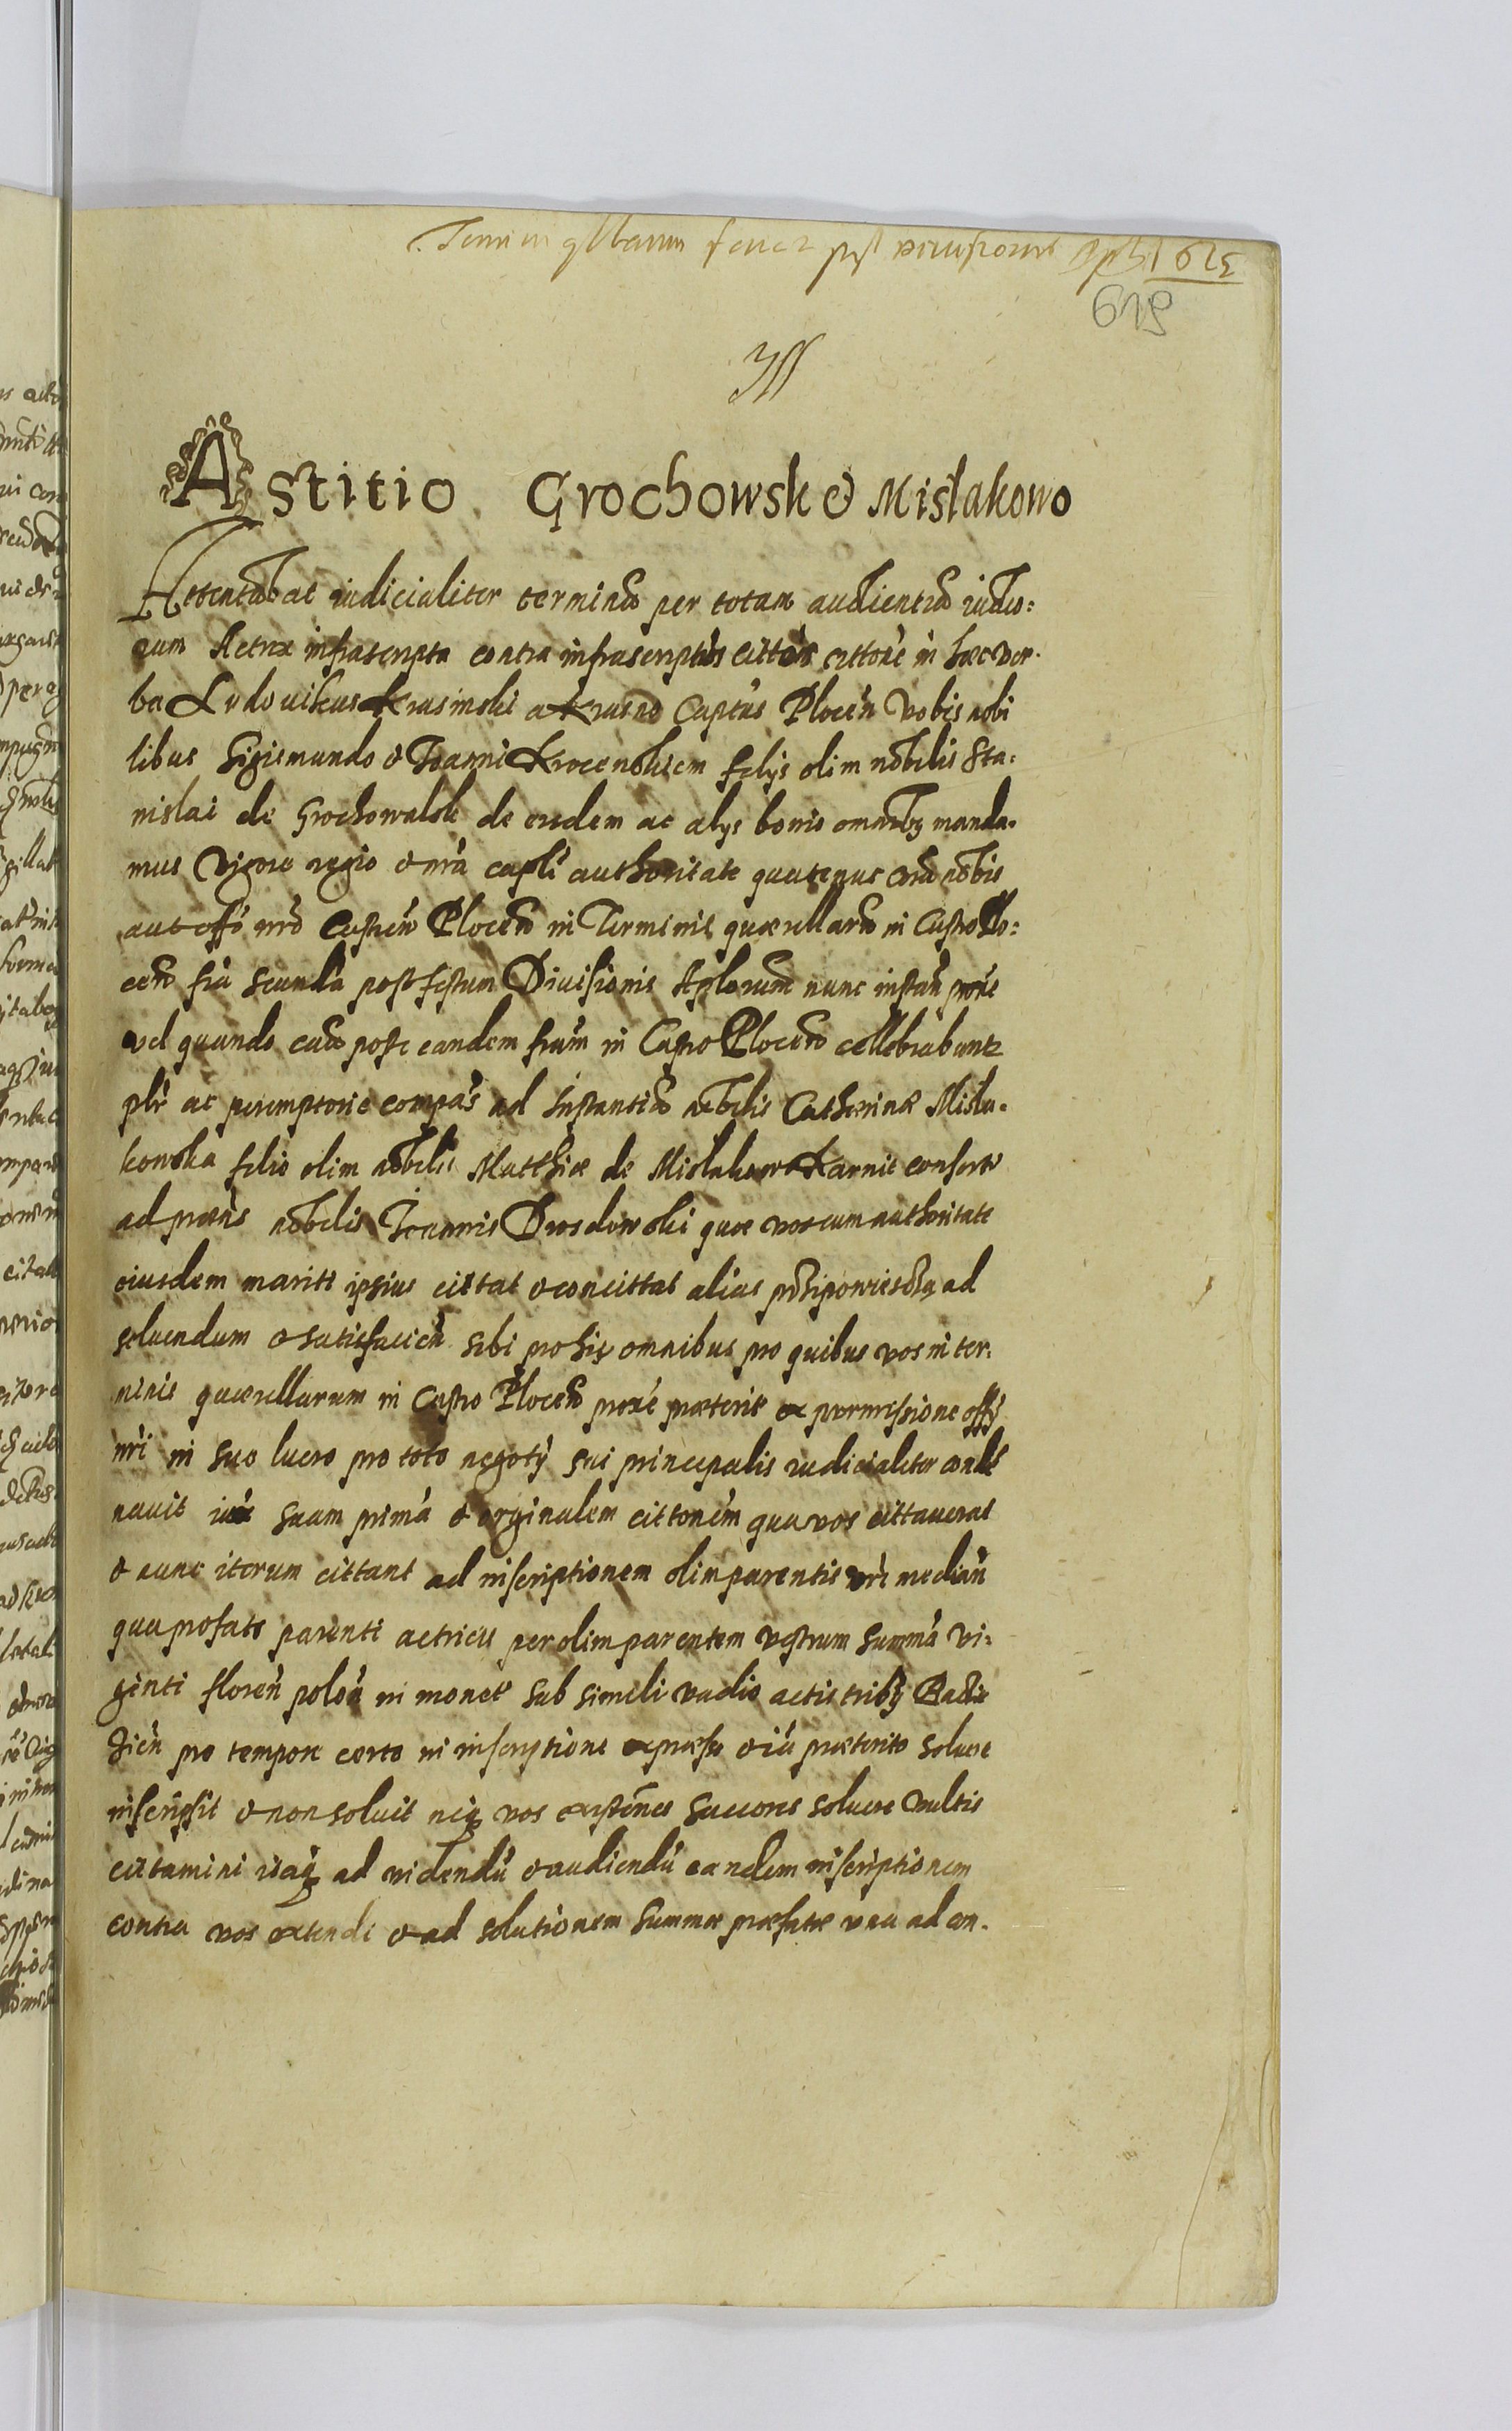 Termin qllarum feria 2 post divisionis Aplo 319
319
Astitio Grochowsk & Mislakowo
Attentabat iudicialiter terminũ per totam audientiã iudio:
rum Actrix infrascripta contra infrascriptos cittos cittone in hæc ver.
ba Ludovikus Krasinski a Krasne Captus Plocen̄ Vobis nobi
libus Sigismundo & Joanni Krocenskiem filys olim nobilis Sta:
nislai de Grochowalsk de eisdem ac alys bonis omnibq manda.
mus Vigore regio & nrã capli authoritate quatenus corã nobis
aut offo nrõ Castren̄ Plocen̄ in Terminis quærellarũ in Castro Plo:
cen̄ fria secunda post festum Divisionis Aplorum nunc instan̄ proxe
vel quando eaũ post eandem friam in Castro Plocen̄ cellebrabuntr
plr ac peremptorie compas ad Instantiã nobilis Catherinæ Misla.
kowska filio olim nobilis Matthiæ de Mislakowo Karnic consorte
ad præns nobilis Joannis Drosdowski quæ vos cum authoritate
eiusdem mariti ipsius cittat & concittat alias przipowiesczą ad
soluendum & satisfacien̄ sibi pro his omnibus pro quibus vos in ter:
minis quærellarum in Castro Plocen̄ proxe præterit ex permissione offy
nri in suo lucro pro toto negoty sui principalis iudicialiter conde
nauit iux suam primã & orginalem cittonem qua vos cittaverat
& nunc iterum cittant ad inscriptionem olim parentis vri median̄
qua profato parenti actricis per olim parentem vestrum summã vi:
ginti floren̄ polon̄ in monet sub simili vadio actis tribq Radie
Jien̄ pro tempore certo in inscriptione expresso & iã præterito soluere
inscripsit & non soluit neq vos existenes succores soluere vultis
cittamini itaq ad videndũ & audiendũ eandem inscriptionem
contra vos extendi & ad solutionem summæ præfatæ vna ad con.